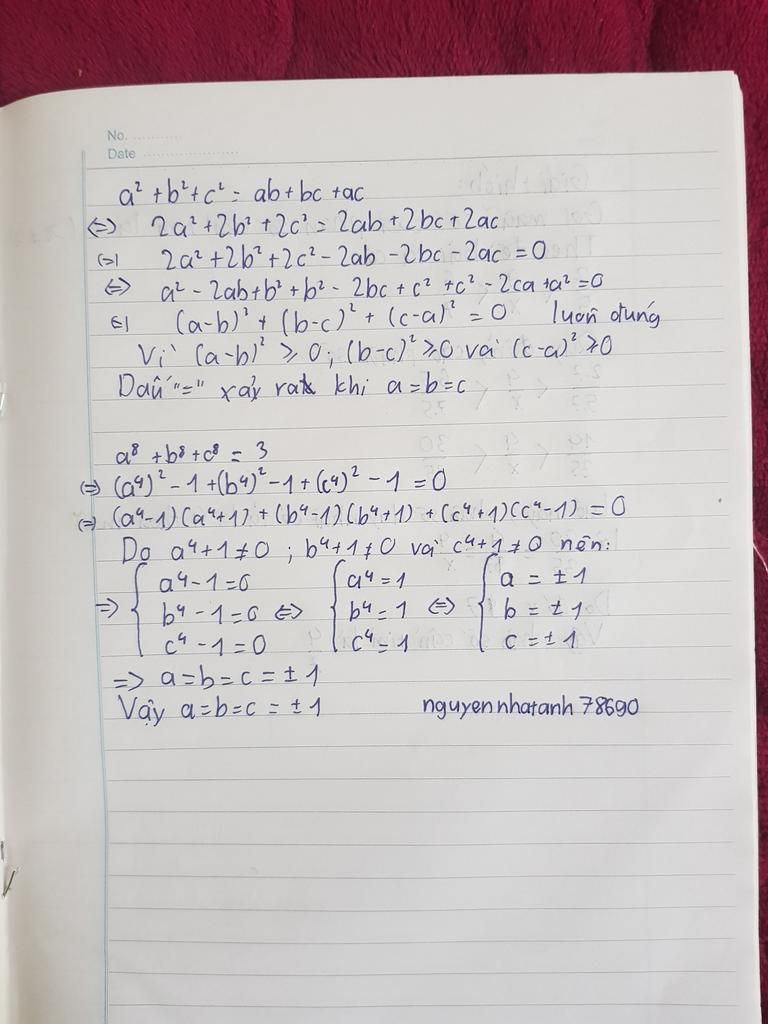 No. ...........
Date .......................
a² + b² + c² = ab + bc + ac
<=> 2a² + 2b² + 2c² = 2ab + 2bc + 2ac
<=> 2a² + 2b² + 2c² - 2ab - 2bc - 2ac = 0
<=> a² - 2ab + b² + b² - 2bc + c² + c² - 2ca + a² = 0
<=> (a-b)² + (b-c)² + (c-a)² = 0 luôn đúng
Vì (a-b)² ⩾ 0 ; (b-c)² ⩾ 0 và (c-a)² ⩾ 0
Dấu "=" xảy ra khi a = b = c
a⁸ + b⁸ + c⁸ = 3
<=> (a⁴)² - 1 + (b⁴)² - 1 + (c⁴)² - 1 = 0
<=> (a⁴-1)(a⁴+1) + (b⁴-1)(b⁴+1) + (c⁴+1)(c⁴-1) = 0
Do a⁴+1 ≠ 0 ; b⁴+1 ≠ 0 và c⁴+1 ≠ 0 nên:
=> { a⁴ - 1 = 0 { a⁴ = 1 { a = ± 1
b⁴ - 1 = 0 <=> b⁴ = 1 <=> b = ± 1
c⁴ - 1 = 0 c⁴ = 1 c = ± 1
=> a = b = c = ± 1
Vậy a = b = c = ± 1 nguyennhatanh78690